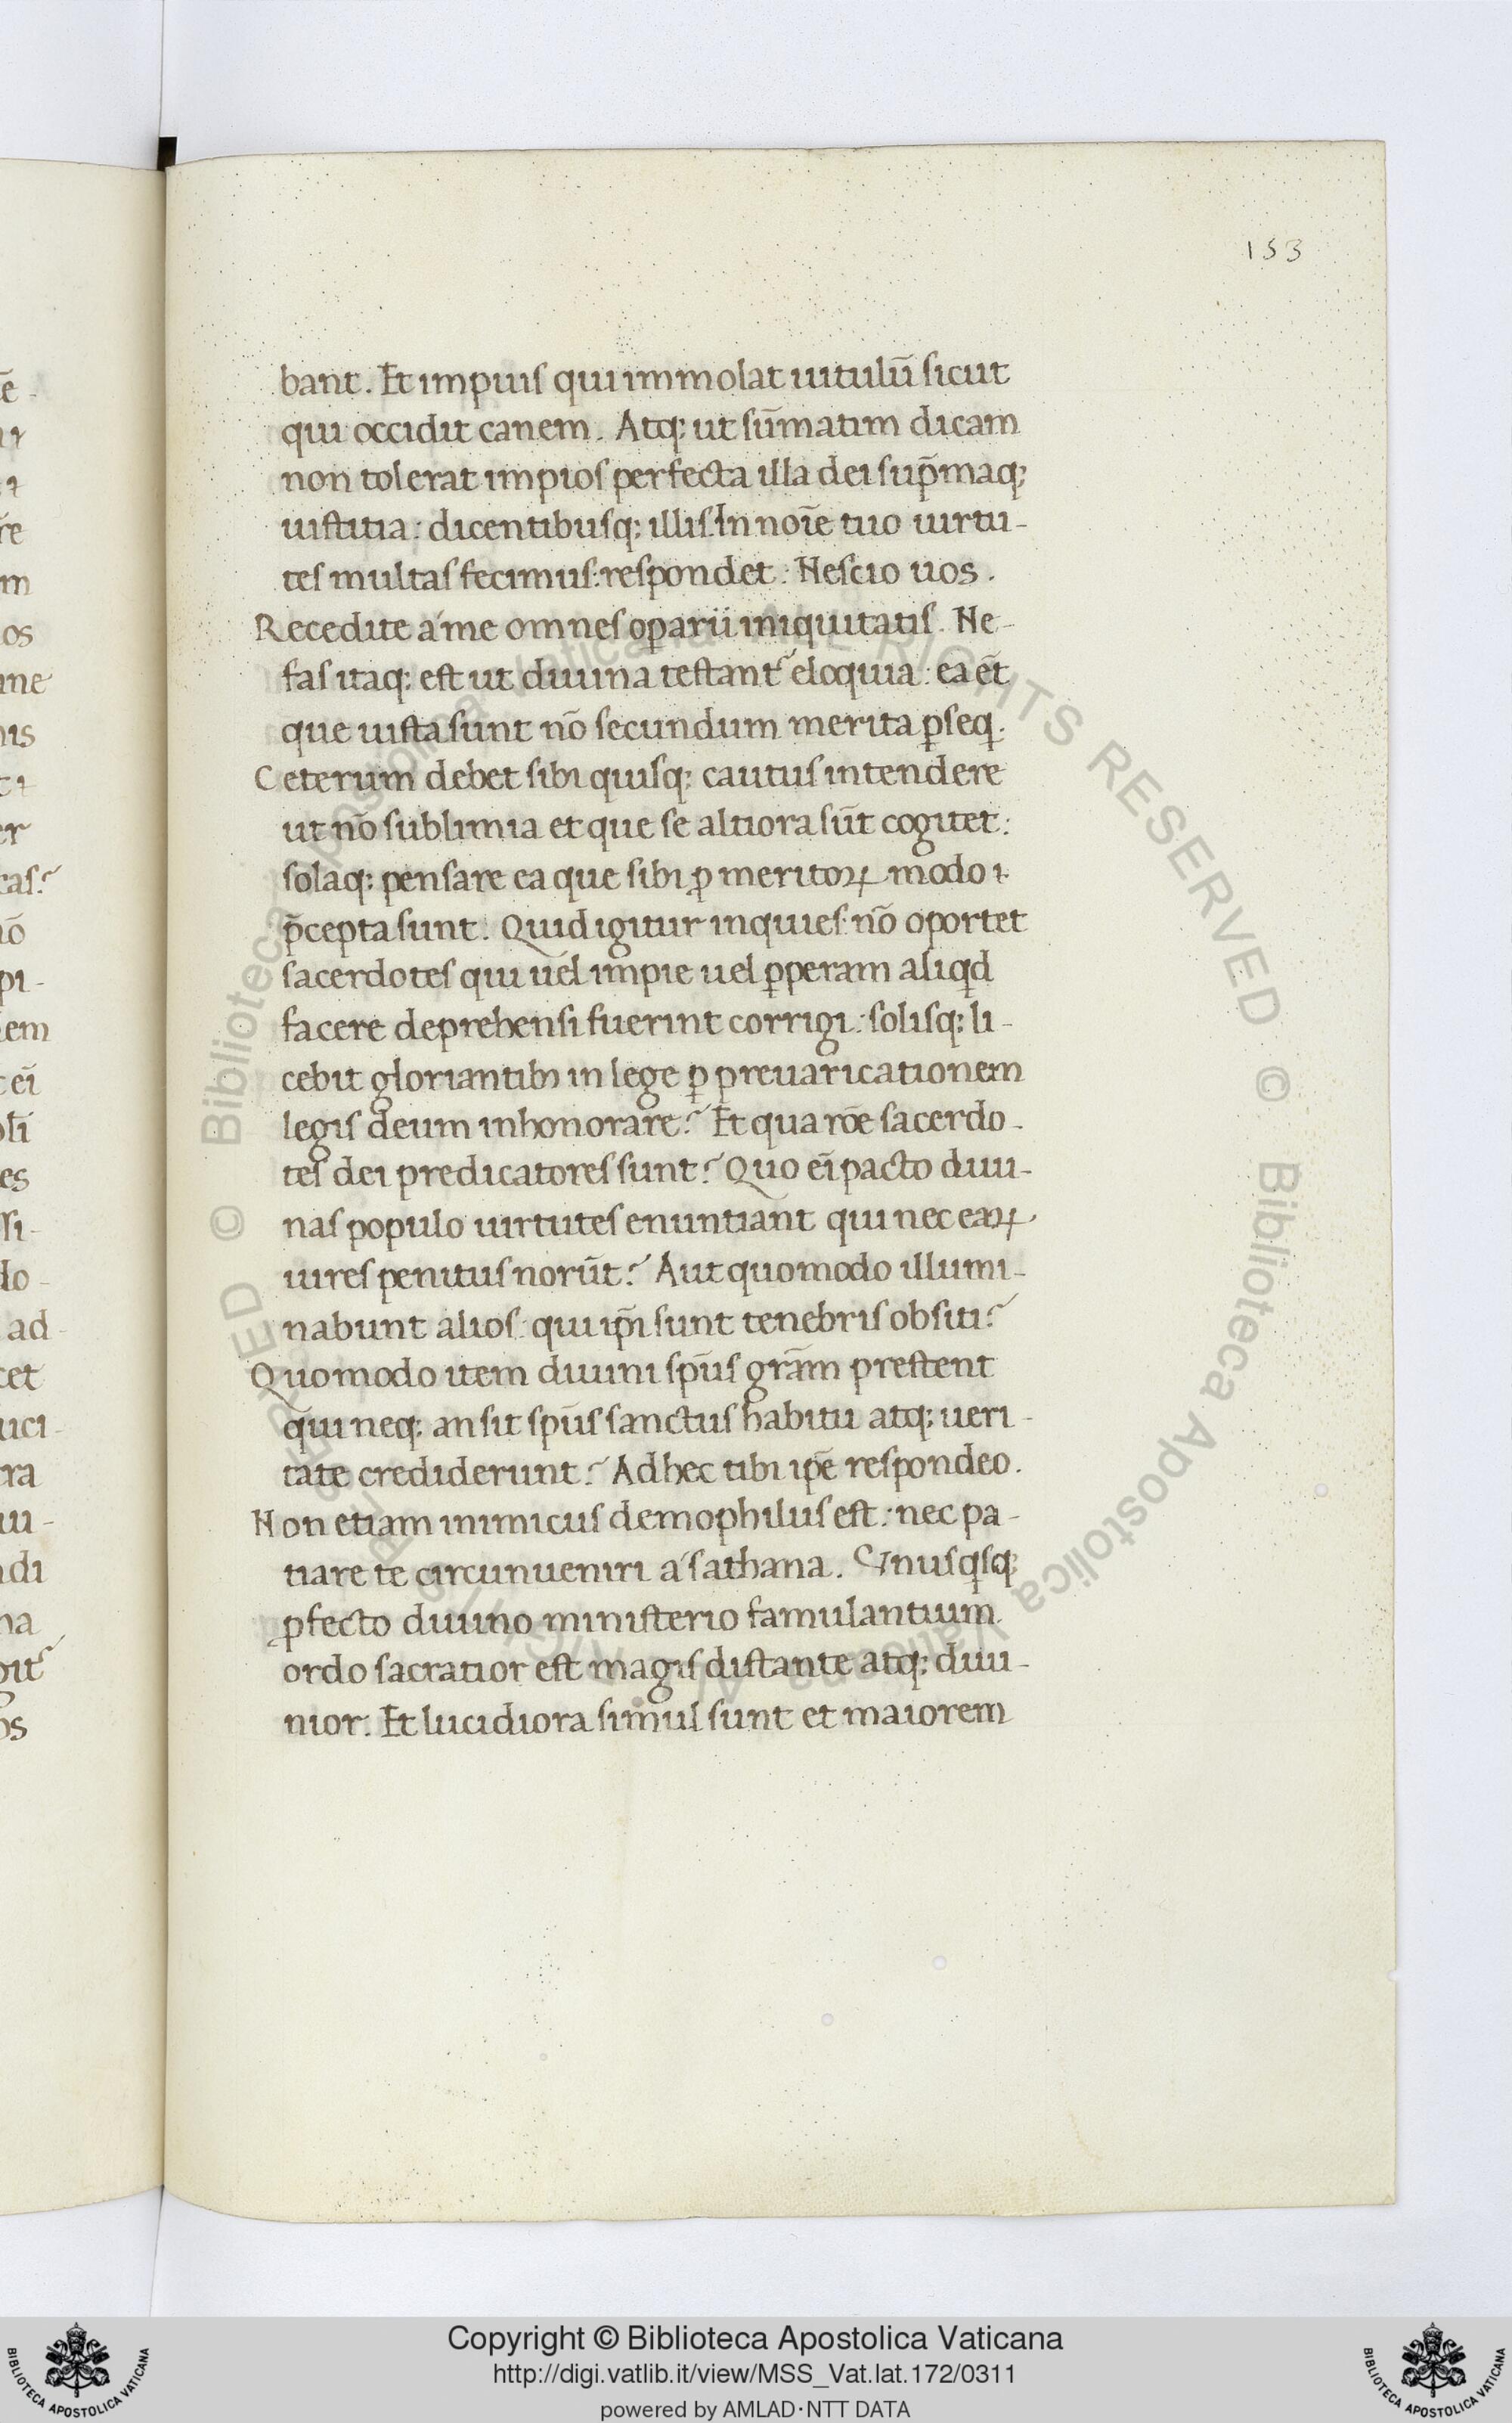 153
bant. Et impius qui immolat uitulū sicut
qui occidit canem. Atq; ut sūmatim dicam
non tolerat impios perfecta illa dei sup̄maq;
iustitia: dicentibusq; illis. In noīe tuo uirtu-
tes multas fecimus: respondet: Nescio uos.
Recedite a me omnes oꝑarii iniquitatis. Ne-
fas itaq; est ut diuina testant᷑ eloquia: ea et̄
que iusta sunt nō secundum merita ꝑseq.
Ceterum debet sibi quisq; cautus intendere
ut nō sublimia et que se altiora sūt cogitet:
solaq; pensare ea que sibi ꝑ meritoꝝ modo
p̄cepta sunt. Quid igitur inquies: nō oportet
sacerdotes qui uel impie uel ꝑperam aliqd
facere deprehensi fuerint corrigi: solisq; li-
cebit gloriantibꝫ in lege ꝑ preuaricationem
legis deum inhonorare? Et qua rōe sacerdo-
tes dei predicatores sunt? Quo ei̅ pacto diui-
nas populo uirtutes enuntiant qui nec eaꝝ
uires penitus norūt? Aut quomodo illumi-
nabunt alios: qui ip̄i sunt tenebris obsiti?
Quomodo item diuini sp̄us gr̄am prestent
qui neq; an sit sp̄us sanctus habitu atq; ueri-
tate crediderunt? Ad hec tibi ip̄e respondeo.
Non etiam inimicus demophilus est: nec pa-
tiare te circunueniri a sathana. Unusqsq;
ꝓfecto diuino ministerio famulantium
ordo sacratior est magis distante atq; diui-
nior. Et lucidiora simul sunt et maiorem
Copyright © Biblioteca Apostolica Vaticana
http://digi.vatlib.it/view/MSS_Vat.lat.172/0311
powered by AMLAD·NTT DATA